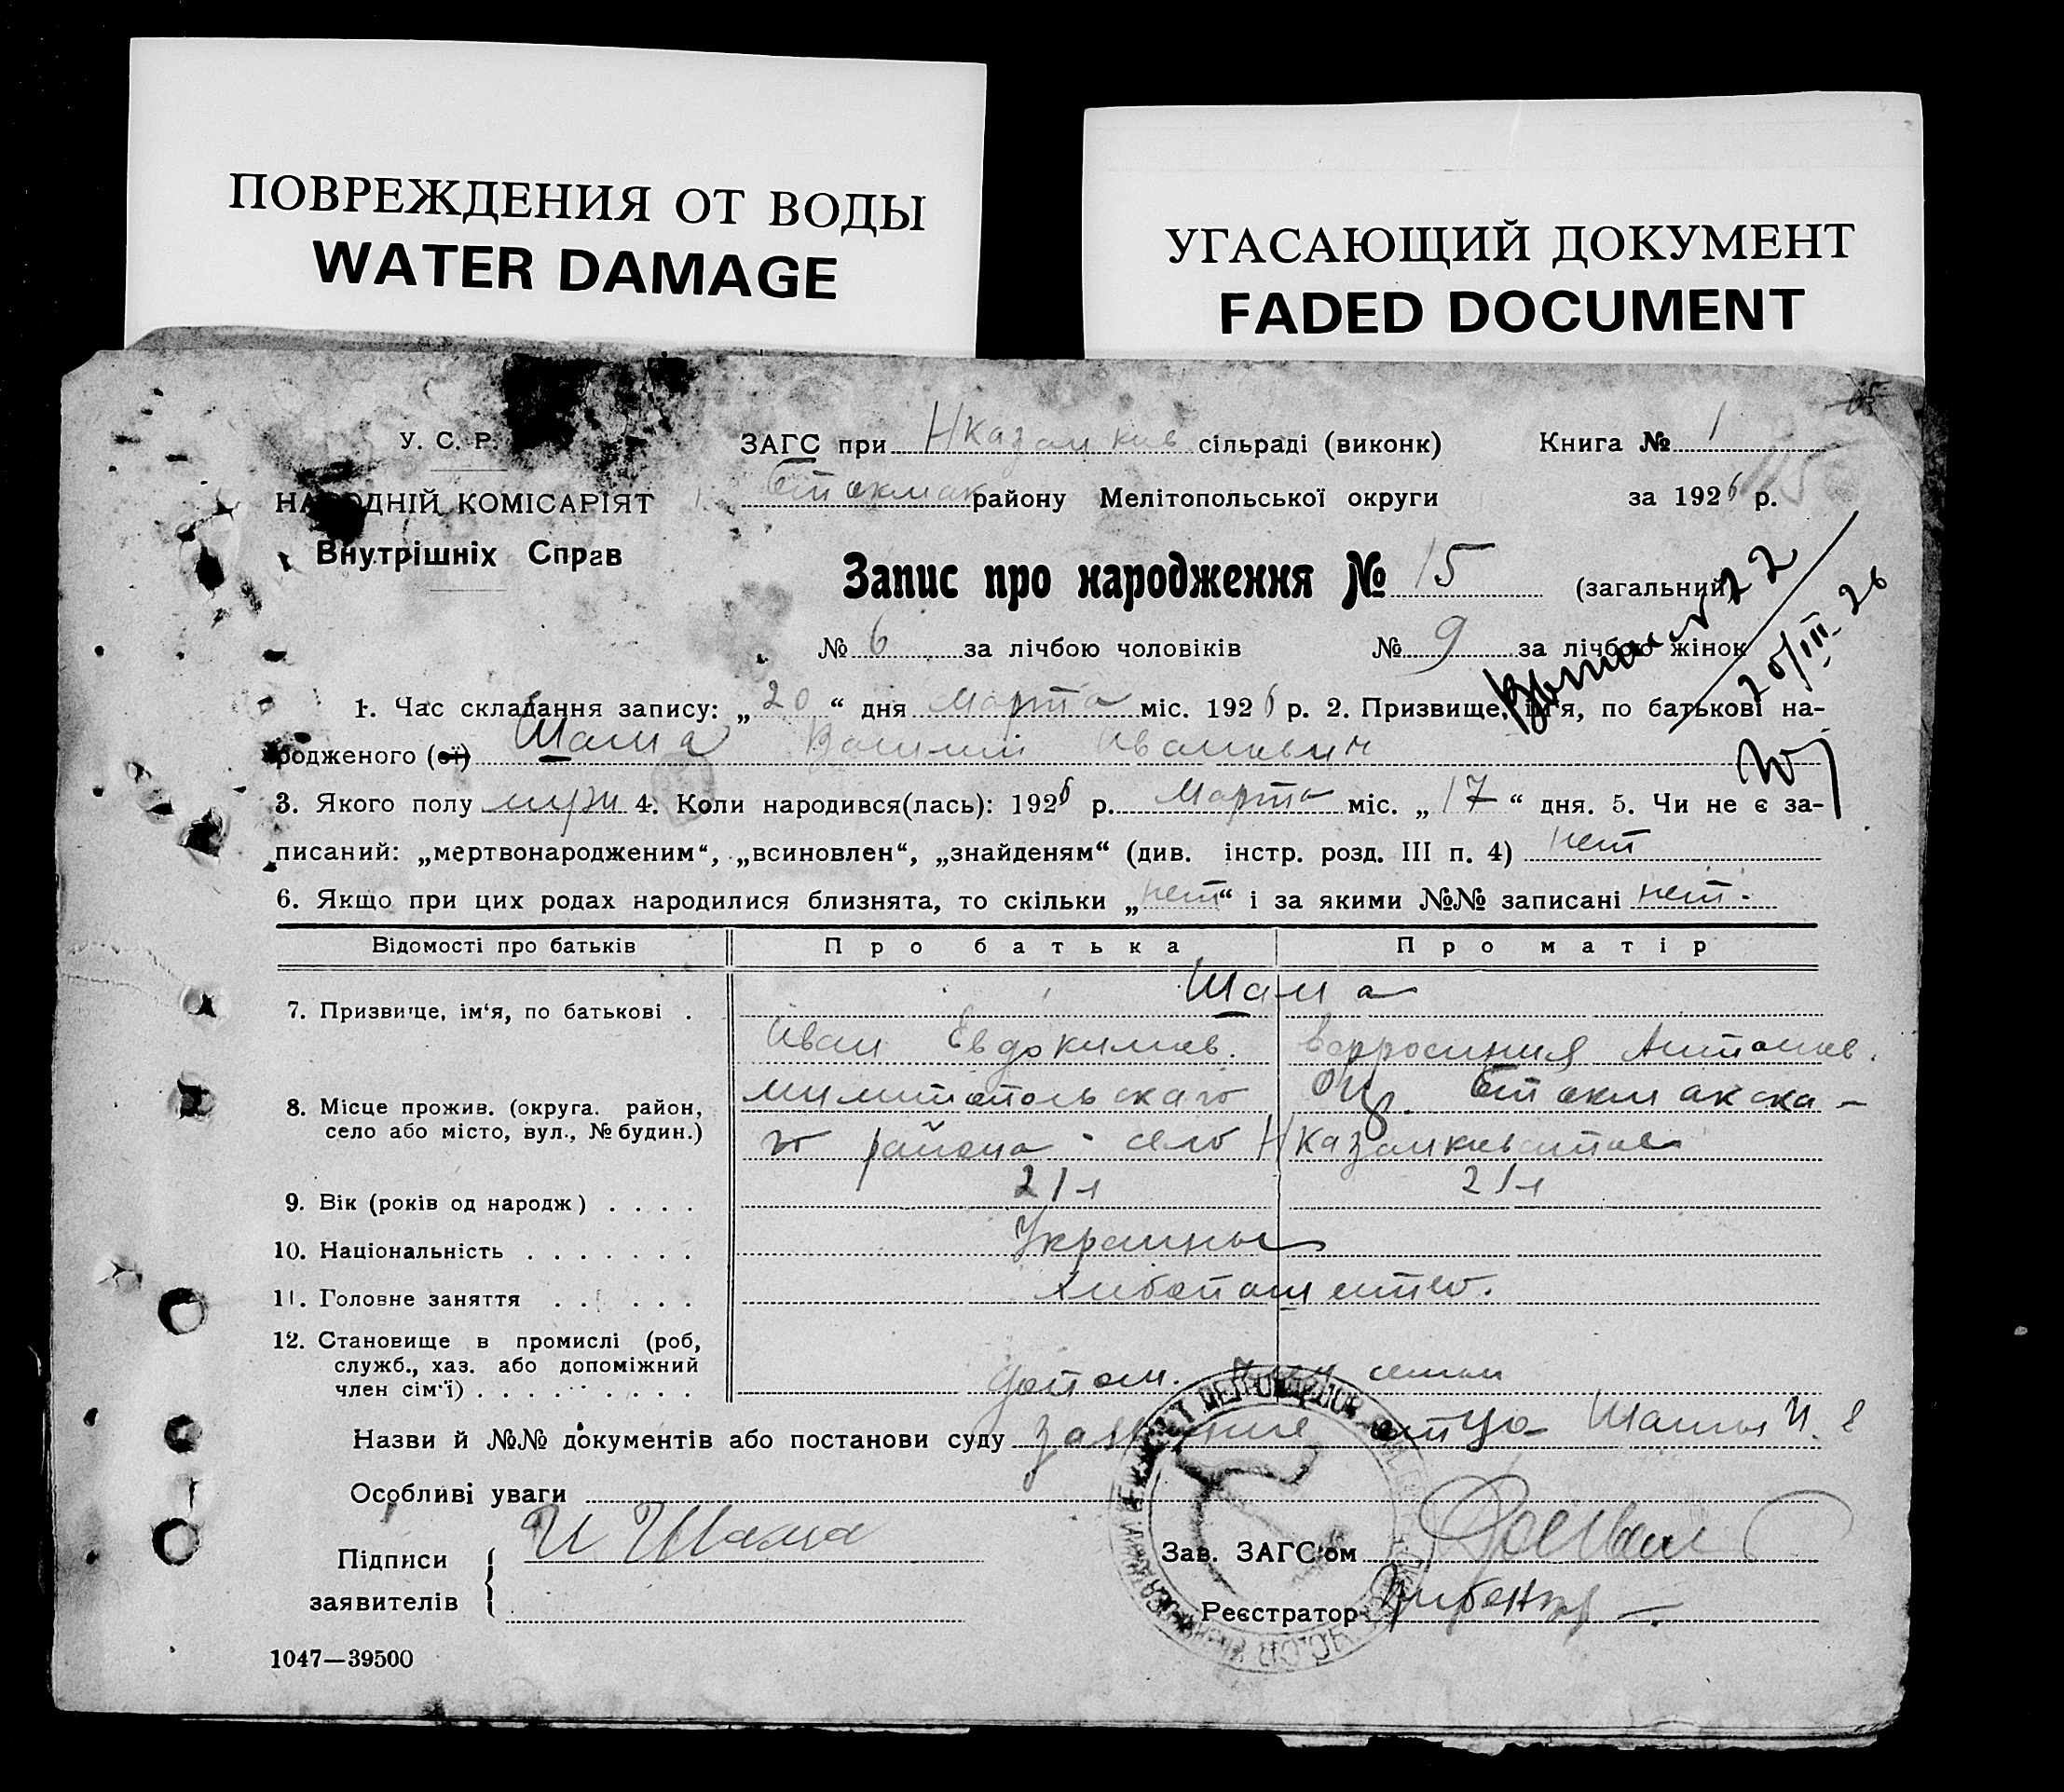 ПОВРЕЖДЕНИЯ ОТ ВОДЫ
WATER DAMAGE
УГАСАЮЩИЙ ДОКУМЕНТ
FADED DOCUMENT
У. С. Р.
НАРОДНІЙ КОМІСАРІЯТ
Внутрішніх Справ
ЗАГС при сільраді (виконк) Книга № 1
району Мелітопольської округи за 1926 р.
Запис про народження № 15 (загальний)
№ 6 за лічбою чоловіків № 9 за лічбою жінок
20/III 26
1. Час складання запису: „20“ дня Марта міс. 1926 р. 2. Призвище, ім'я, по батькові на-
родженого (ої) Шама Василий Иванович
3. Якого полу муж 4. Коли народився(лась): 1926 р. Марта міс. „17“ дня. 5. Чи не є за-
писаний: „мертвонародженим“, „всиновлен“, „знайденям“ (див. інстр. розд. III п. 4) нет
6. Якщо при цих родах народилися близнята, то скільки „нет“ і за якими №№ записані нет.
Відомості про батьків Про батька Про матір
7. Призвище, ім'я, по батькові . Шама
Иван Евдокимов. Антонов.
8. Місце прожив. (округа. район, Окр.
село або місто, вул., № будин.) района село
9. Вік (років од народж) . . . . 21 л 21 л
10. Національність . . . . . . . Украинцы
11. Головне заняття . . . . . .
12. Становище в промислі (роб,
служб., хаз. або допоміжний
член сім'ї) . . . . . . . . . допом. семьи
Назви й №№ документів або постанови суду отца Шамы И. Е
Особливі уваги
Підписи И Шама
заявителів
Зав. ЗАГС'ом
Реєстратор
1047—39500